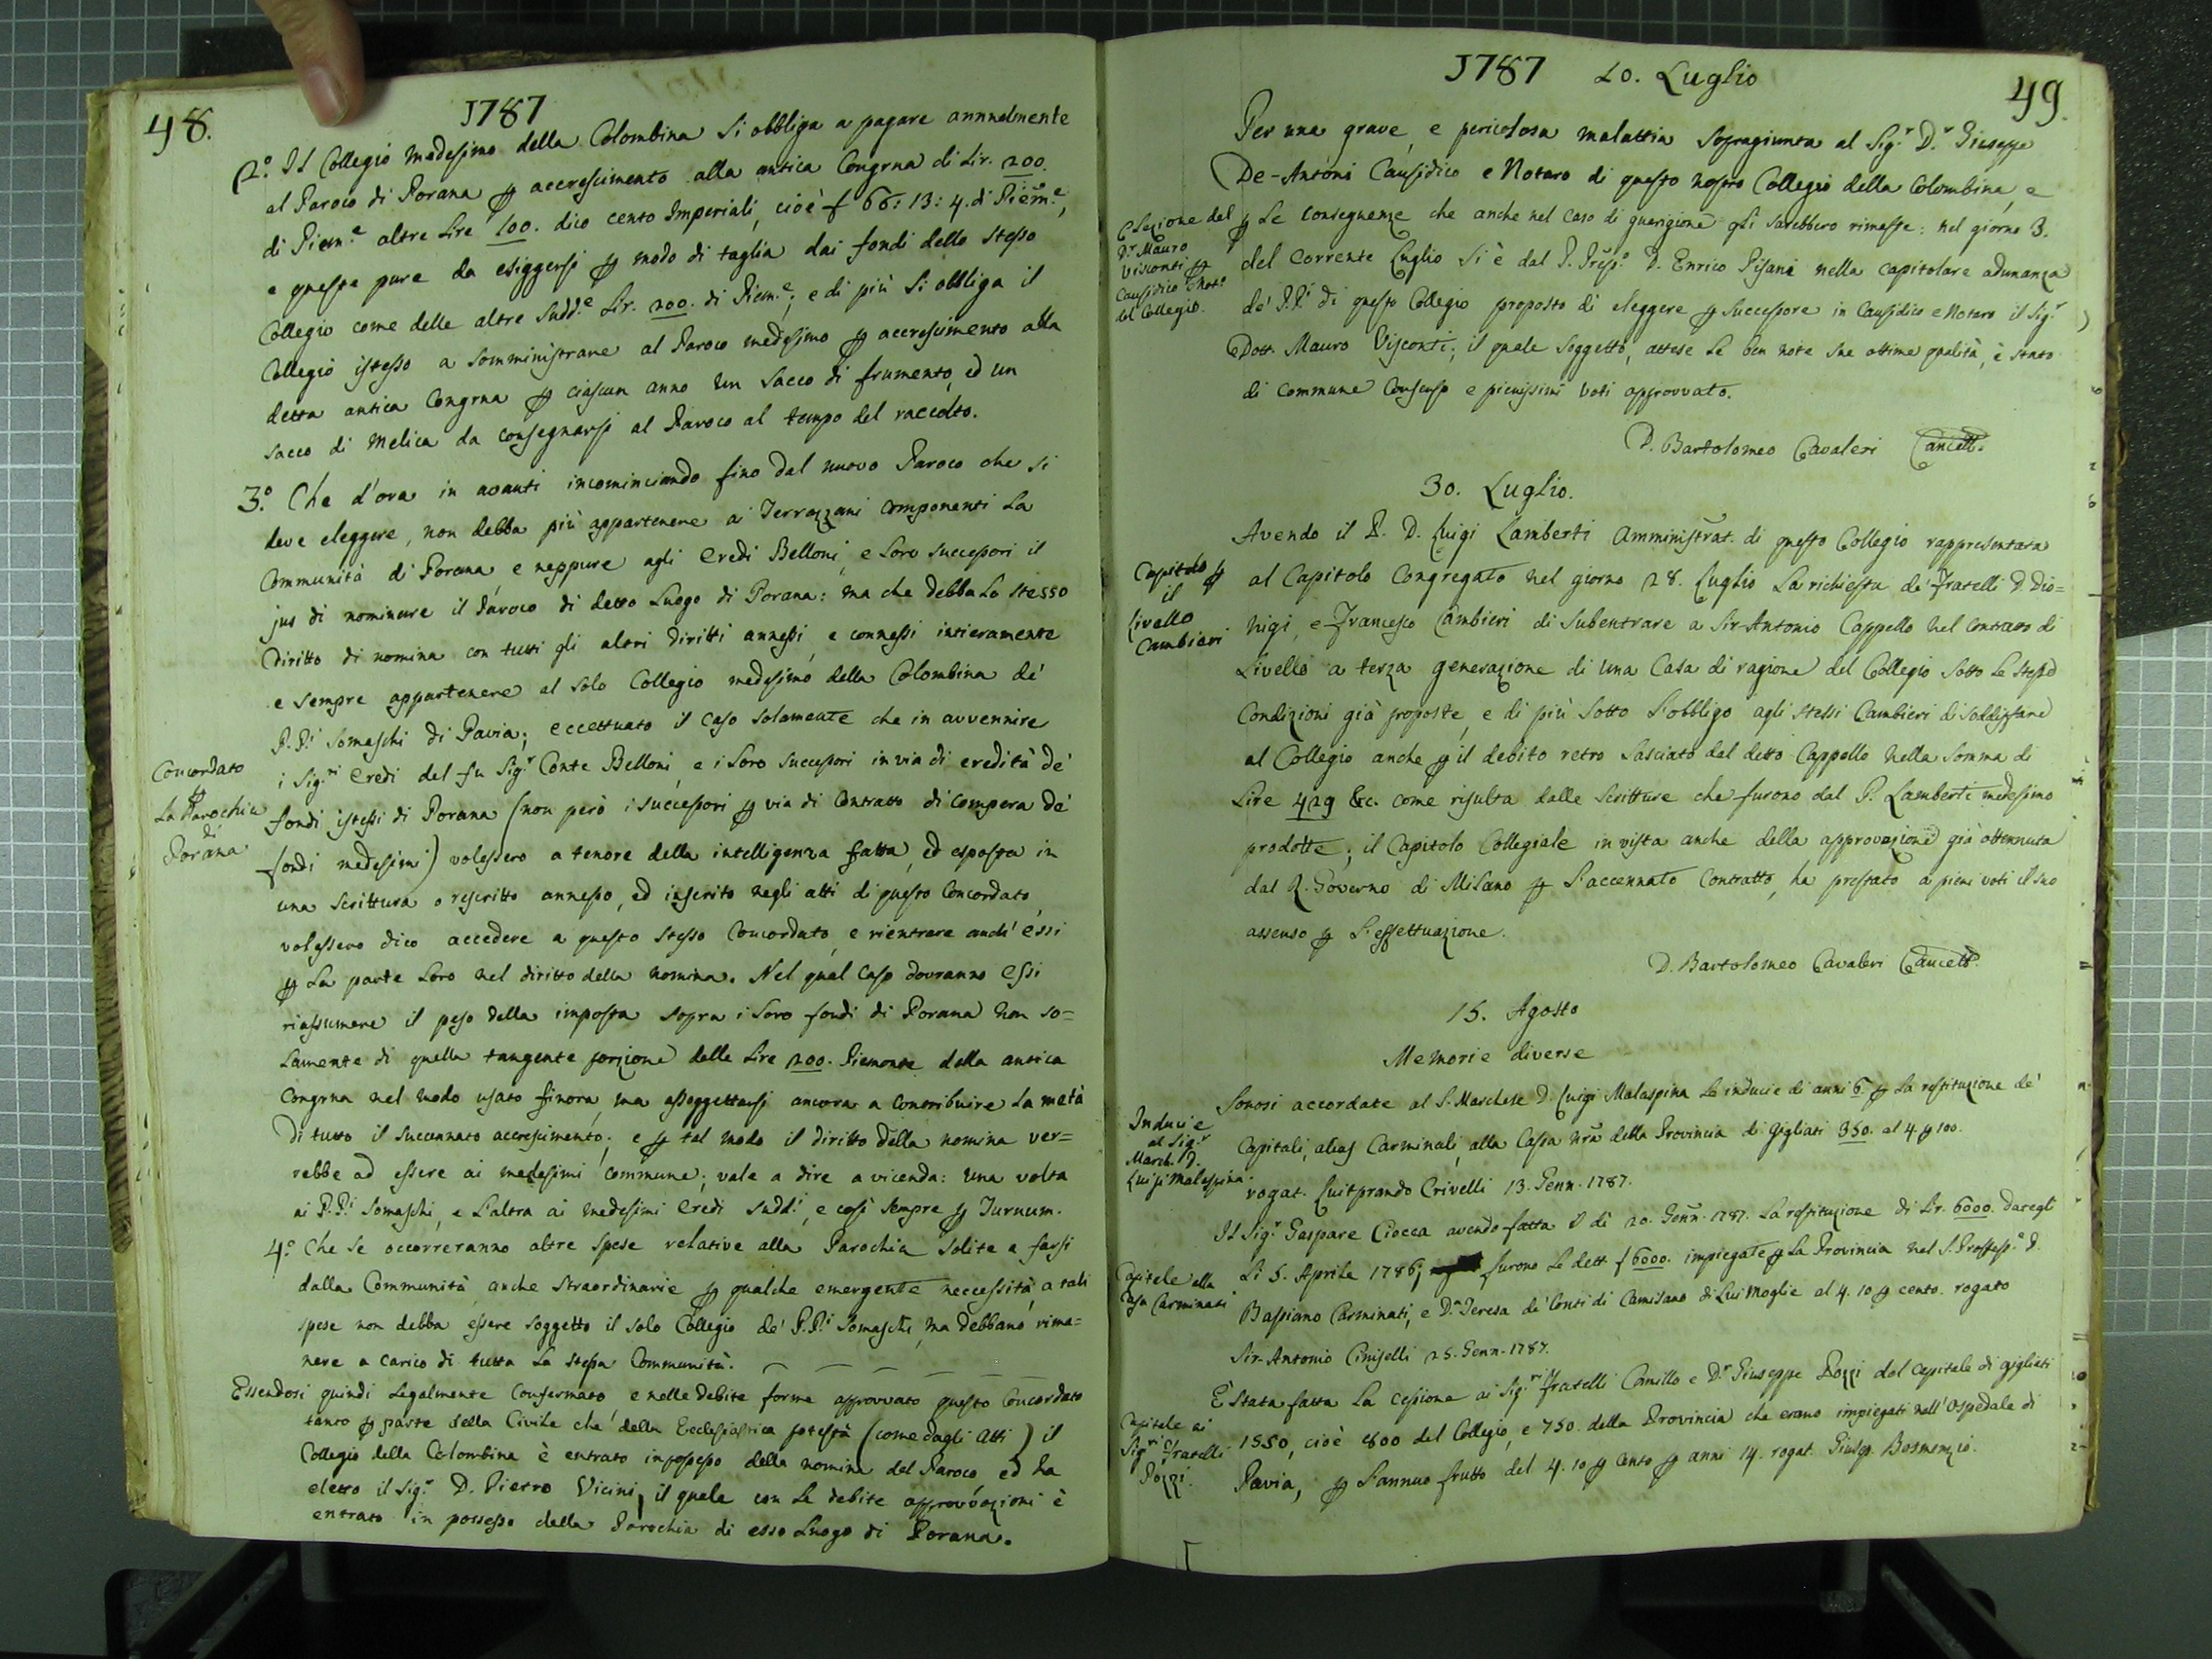 48.
1787
2.° Il Collegio medesimo della Colombina si obbliga a pagare annualmente
al Paroco di Porana p accrescimento alla antica Congrua di Lir. 200.
di Piem.e altre Lire 100. dico cento Imperiali, cioè £ 66: 13: 4. di Piem.e,
e queste pure da esiggersi p modo di taglia dai fondi dello stesso
Collegio come delle altre sudd.e Lir. 200. di Piem.e; e di più si obbliga il
Collegio istesso a somministrare al Paroco medesimo p accrescimento alla
detta antica Congrua p ciascun anno un sacco di frumento, ed un
sacco di melica da consegnarsi al Paroco al tempo del raccolto.
3.° Che d'ora in avanti incominciando fino dal nuovo Paroco che si
deve eleggere, non debba più appartenere ai Terrazzani componenti la
Communità di Porana, e neppure agli Eredi Belloni, e loro successori il
jus di nominare il Paroco di detto Luogo di Porana: ma che debba lo stesso
diritto di nomina con tutti gli altri diritti annessi, e connessi intieramente
e sempre appartenere al solo Collegio medesimo della Colombina de'
P.P.i Somaschi di Pavia; eccettuato il caso solamente che in avvennire
i Sig.ri Eredi del fu Sig.r Conte Belloni, e i loro successori in via di eredità de'
Concordato
p
La Parochia
di
Porana
fondi istessi di Porana (non però i successori p via di Contratto di compera de'
fondi medesimi) volessero a tenore della intelligenza fatta, ed esposta in
una scrittura o rescritto annesso, ed inscrito negli atti di questo Concordato,
volessero dico accedere a questo stesso Concordato, e rientrare anch'essi
p la parte loro nel diritto della nomina. Nel qual caso dovranno essi
riassumere il peso della imposta sopra i loro fondi di Porana non so=
lamente di quella tangente porzione delle Lire 200. Piemonte della antica
Congrua nel modo usato finora, ma assoggettarsi ancora a contribuire la metà
di tutto il succennato accrescimento; e p tal modo il diritto della nomina ver=
rebbe ad essere ai medesimi commune; vale a dire a vicenda: una volta
ai P.P.i Somaschi, e l'altra ai medesimi Eredi sudd.i, e così sempre p Turnum.
4.° Che se occorreranno altre spese relative alla Parochia solite a farsi
dalla Communità, anche straordinarie p qualche emergente neccessità, a tali
spese non debba essere soggetto il solo Collegio de' P.P.i Somaschi, ma debbano rima=
nere a carico di tutta la stessa Communità.
Essendosi quindi legalmente confermato, e nelle debite forme approvvato questo Concordato
tanto p parte della Civile che della Ecclesiastica potestà (come dagli Atti) il
Collegio della Colombina è entrato in possesso della nomina del Paroco, ed ha
eletto il Sig.r D. Pietro Vicini, il quale con le debite approvvazioni è
entrato in possesso della Parochia di esso Luogo di Porana.
1787 10. Luglio
49.
Per una grave, e pericolosa malattia sopragiunta al Sig.r D.r Giuseppe
De-Antoni Causidico e Notaro di questo nostro Collegio della Colombina, e
p le conseguenze che anche nel caso di guarigione gli sarebbero rimaste: nel giorno 3.
Elezione del
D.r Mauro
Visconti p
Causidico e Not.o
del Collegio.
del corrente Luglio si è dal P. Prep.o D. Enrico Pisani nella capitolare adunanza
de' P.P.i di questo Collegio proposto di eleggere p successore in Causidico e Notaro il Sig.r
Dott. Mauro Visconti; il quale soggetto, attese le ben note sue ottime qualità, è stato
di commune consenso e pienissimi voti approvvato.
D. Bartolomeo Cavaleri Cancell.
30. Luglio.
Avendo il P. D. Luigi Lamberti Amministrat. di questo Collegio rappresentata
al Capitolo Congregato nel giorno 28. Luglio la richiesta de' Fratelli D. Dio=
Capitolo p
il
Livello
Cambieri
nigi, e Francesco Cambieri di subentrare a Sir-Antonio Cappello nel contratto di
Livello a terza generazione di una Casa di ragione del Collegio sotto le stesse
Condizioni già proposte, e di più sotto l'obbligo agli stessi Cambieri di soddisfare
al Collegio anche p il debito retro lasciato dal detto Cappello nella somma di
Lire 429 &c. come risulta dalle scritture che furono dal P. Lamberti medesimo
prodotte; il Capitolo Collegiale in vista anche della approvazione già ottennuta
dal R. Governo di Milano p l'accennato Contratto, ha prestato a pieni voti il suo
assenso p l'effettuazione.
D. Bartolomeo Cavaleri Cancell.
15. Agosto
Memorie diverse
Sonosi accordate al S. Marchese D. Luigi Malaspina le inducie di anni 6. p la restituzione de'
Inducie
al Sig.r
March. D.
Luigi Malaspina.
Capitali, alias Carminali, alla Cassa nr̃a della Provincia di Gigliati 350. al 4 p 100.
rogat. Luitprando Crivelli 13. Genn. 1787.
Il Sig.r Gaspare Ciocca avendo fatta il dì 20. Genn. 1787. la restituzione di Lir. 6000. dategli
Capitale alla
Casa Carminati
Li 5. Aprile 1786; furono le dett. £ 6000. impiegate p la Provincia nel S. D.
Bassiano Carminati, e D.a Teresa de' Conti di Camisano di lui Moglie al 4. 10 p cento. rogato
Sir-Antonio Ciniselli 25. Genn. 1787.
È stata fatta la cessione ai Sig.ri Fratelli Camillo e D.r Giuseppe Pozzi del capitale di gigliati
Capitale ai
Sig.ri Fratelli
Pozzi.
1550, cioè 800 del Collegio, e 750. della Provincia che erano impiegati nell'Ospedale di
Pavia, p l'annuo frutto del 4. 10 p cento p anni 14. rogat. Giusep. Bosmenzio.